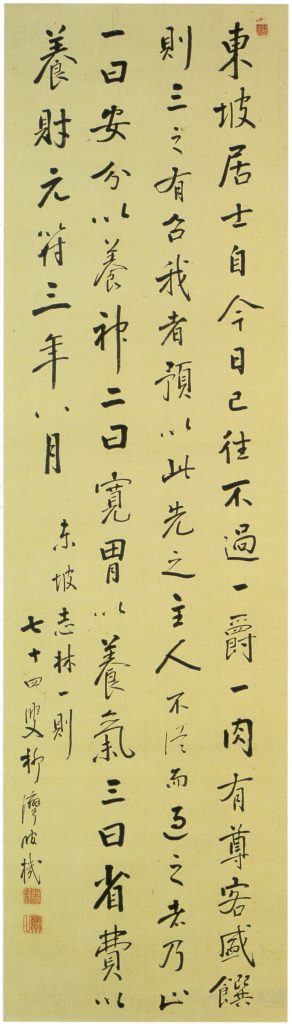 東坡居士自今日已往不過一爵一肉有尊客盛饌
則三之有召我者預以此先之主人不從而過之者乃止
一曰安分以養神二曰寬胃以養氣三曰省費以
養財元符三年八月
東坡志林一則
七十四叟